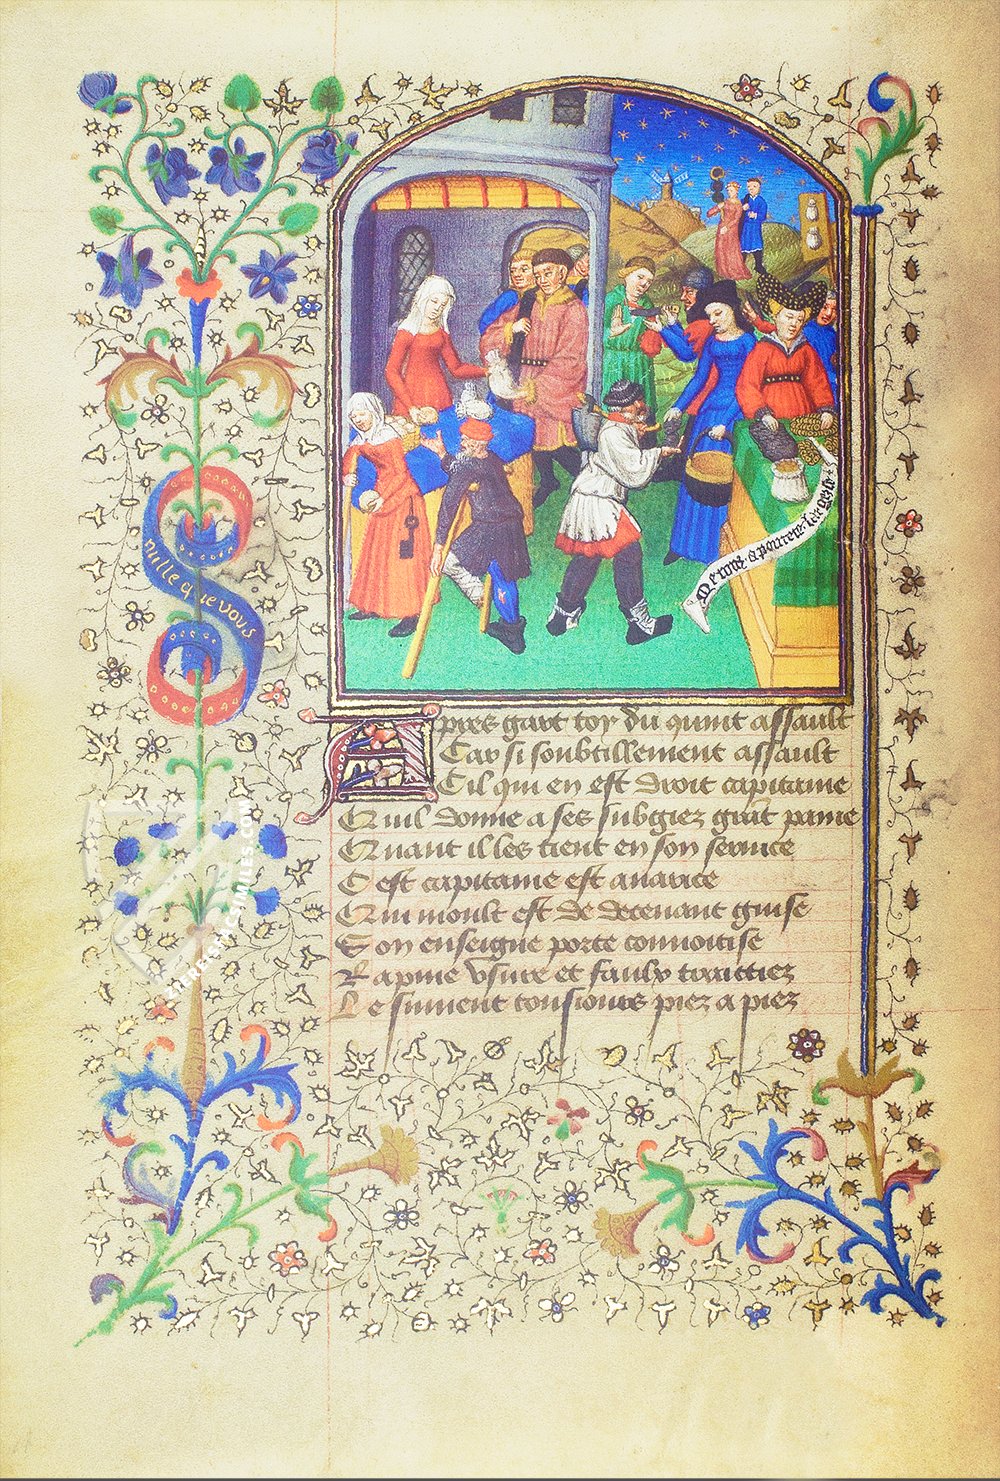 nulle que vous
Apres gart toy du quint assault
Car si soubtillement assault
Cil qui en est droit capitaine
Quil donne a ses subgiez grāt paine
Quant il les tient en son seruice
Cest capitaine est auarice
Qui moult est de deceuant guise
Son enseigne porte conuoitise
Rapine vsure et faulx traictiez
Le siuuent tousiours piez a piez
FACSIMILES.COM